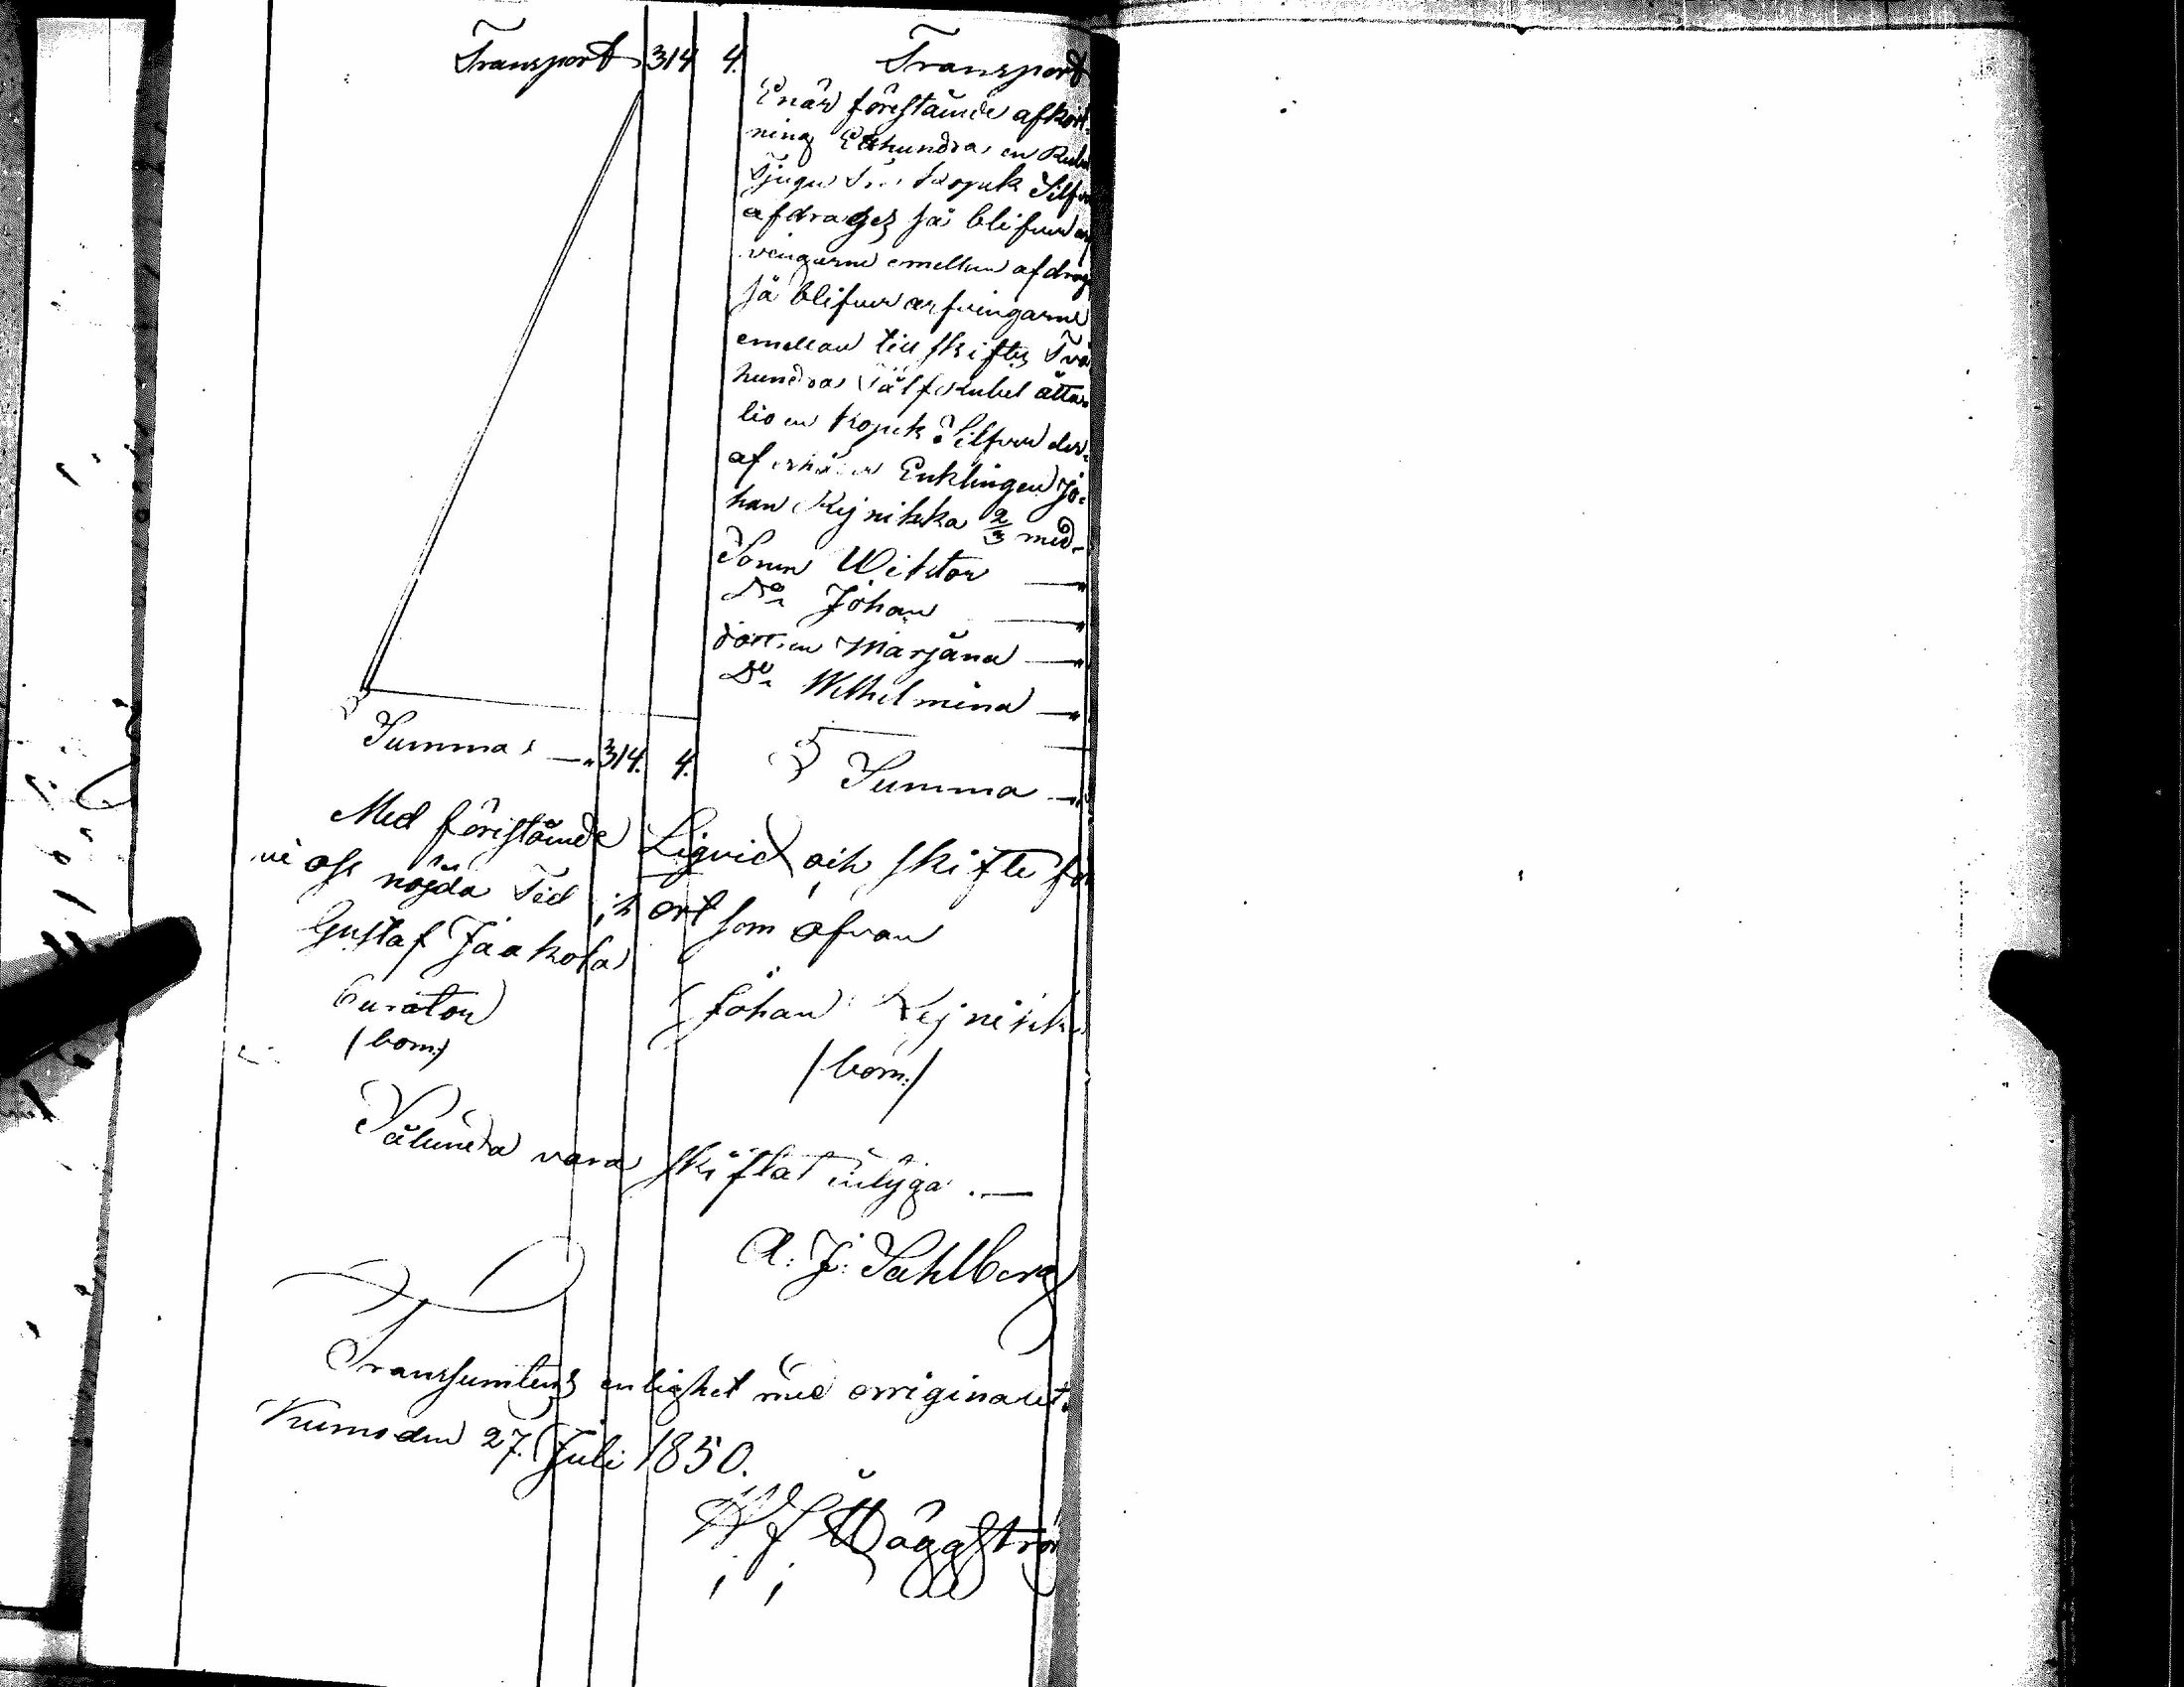 Transport 314 4. Transport
Enär föreståmde afkort-
ning Etthundra en Rubel
Tjugu Tre kopek Silfver
afdrages så blifver arf
vingarne emellan afdrag
så blifver arfvingarne
emellan till skiftes Två
hundra Tålf Rubel åttar
tio en kopek Silfver der-
af erhåller Enklingen Jo-
han Kejnikka 2/3 med-
Sonen Wiktor —„
Do Johan —„
dottren Marjana —„
Do Wilhelmina —„
Summa —„ 314. 4. Summa —„
Med föreståmde Liqvid och skifte få
vi oss nöjda Tid och ort som ofvan
Gustaf Jaakola Johan Kejnikka
Curator /bom:/
/bom:/
Sålunda vara skiftat intyga .—
A. J. Sahlberg
Transumtens enlighet med orriginalet.
Kumo den 27. Juli 1850.
Häggströ